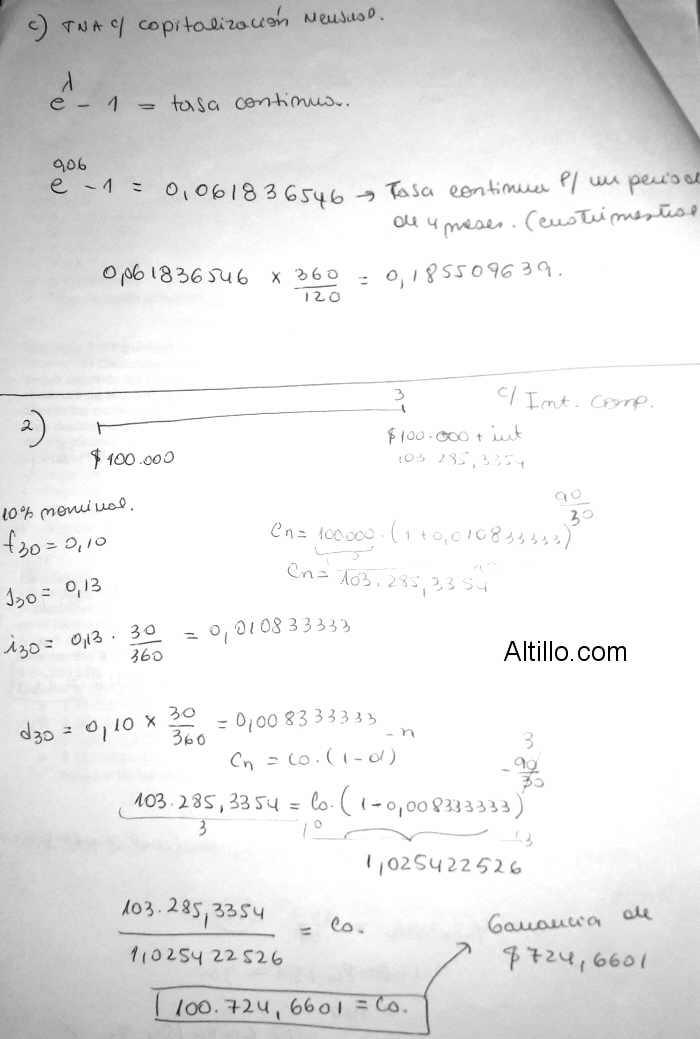 c) TNA c/ capitalización Mensual.
e^λ - 1 = tasa continua.
e^0,06 - 1 = 0,061836546 → Tasa continua P/ un period
de 4 meses. (cuatrimestral
0,061836546 x 360/120 = 0,185509639.
2)
3
c/ Int. Comp.
$ 100.000
$100.000 + int
103.285,3354
10% nominal.
f30 = 0,10
J30 = 0,13
i30 = 0,13 . 30/360 = 0,010833333
Cn = 100.000 . (1 + 0,010833333)^90/30
Cn = 103.285,3354
Altillo.com
d30 = 0,10 x 30/360 = 0,008333333
Cn = Co . (1 - d)^-n
3
103.285,3354 = Co . (1 - 0,008333333)^-90/30
3
1,025422526
103.285,3354 / 1,025422526 = Co.
Ganancia de
$ 724,6601
100.724,6601 = Co.